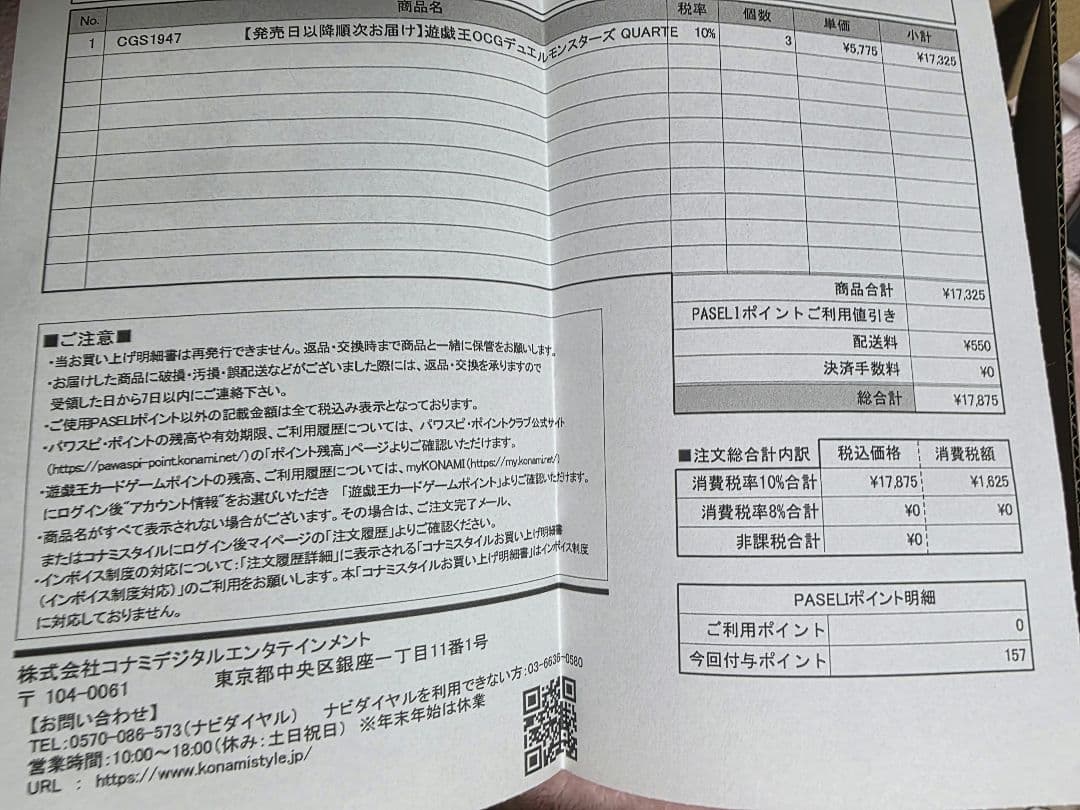 No. 商品名 税率 個数 単価 小計
1 CGS1947 【発売日以降順次お届け】遊戯王OCGデュエルモンスターズ QUARTE 10% 3 ¥5,775 ¥17,325
商品合計 ¥17,325
PASELIポイントご利用値引き
配送料 ¥550
決済手数料 ¥0
総合計 ¥17,875
■ご注意■
・当お買い上げ明細書は再発行できません。返品・交換時まで商品と一緒に保管をお願いします。
・お届けした商品に破損・汚損・誤配送などがございました際には、返品・交換を承りますので
受領した日から7日以内にご連絡下さい。
・ご使用PASELIポイント以外の記載金額は全て税込み表示となっております。
・パワスピ・ポイントの残高や有効期限、ご利用履歴については、パワスピ・ポイントクラブ公式サイト
(https://pawaspi-point.konami.net/)の「ポイント残高」ページよりご確認いただけます。
・遊戯王カードゲームポイントの残高、ご利用履歴については、myKONAMI(https://my.konami.net/)
にログイン後"アカウント情報"をお選びいただき 「遊戯王カードゲームポイント」よりご確認いただけます。
・商品名がすべて表示されない場合がございます。その場合は、ご注文完了メール、
またはコナミスタイルにログイン後マイページの「注文履歴」よりご確認ください。
・インボイス制度の対応について:「注文履歴詳細」に表示される「コナミスタイルお買い上げ明細書
(インボイス制度対応)」のご利用をお願いします。本「コナミスタイルお買い上げ明細書」はインボイス制度
に対応しておりません。
■注文総合計内訳 税込価格 消費税額
消費税率10%合計 ¥17,875 ¥1,625
消費税率8%合計 ¥0 ¥0
非課税合計 ¥0
PASELIポイント明細
ご利用ポイント 0
今回付与ポイント 157
株式会社コナミデジタルエンタテインメント
〒 104-0061 東京都中央区銀座一丁目11番1号
【お問い合わせ】
TEL:0570-086-573(ナビダイヤル) ナビダイヤルを利用できない方:03-6636-0580
営業時間:10:00～18:00(休み:土日祝日) ※年末年始は休業
URL : https://www.konamistyle.jp/